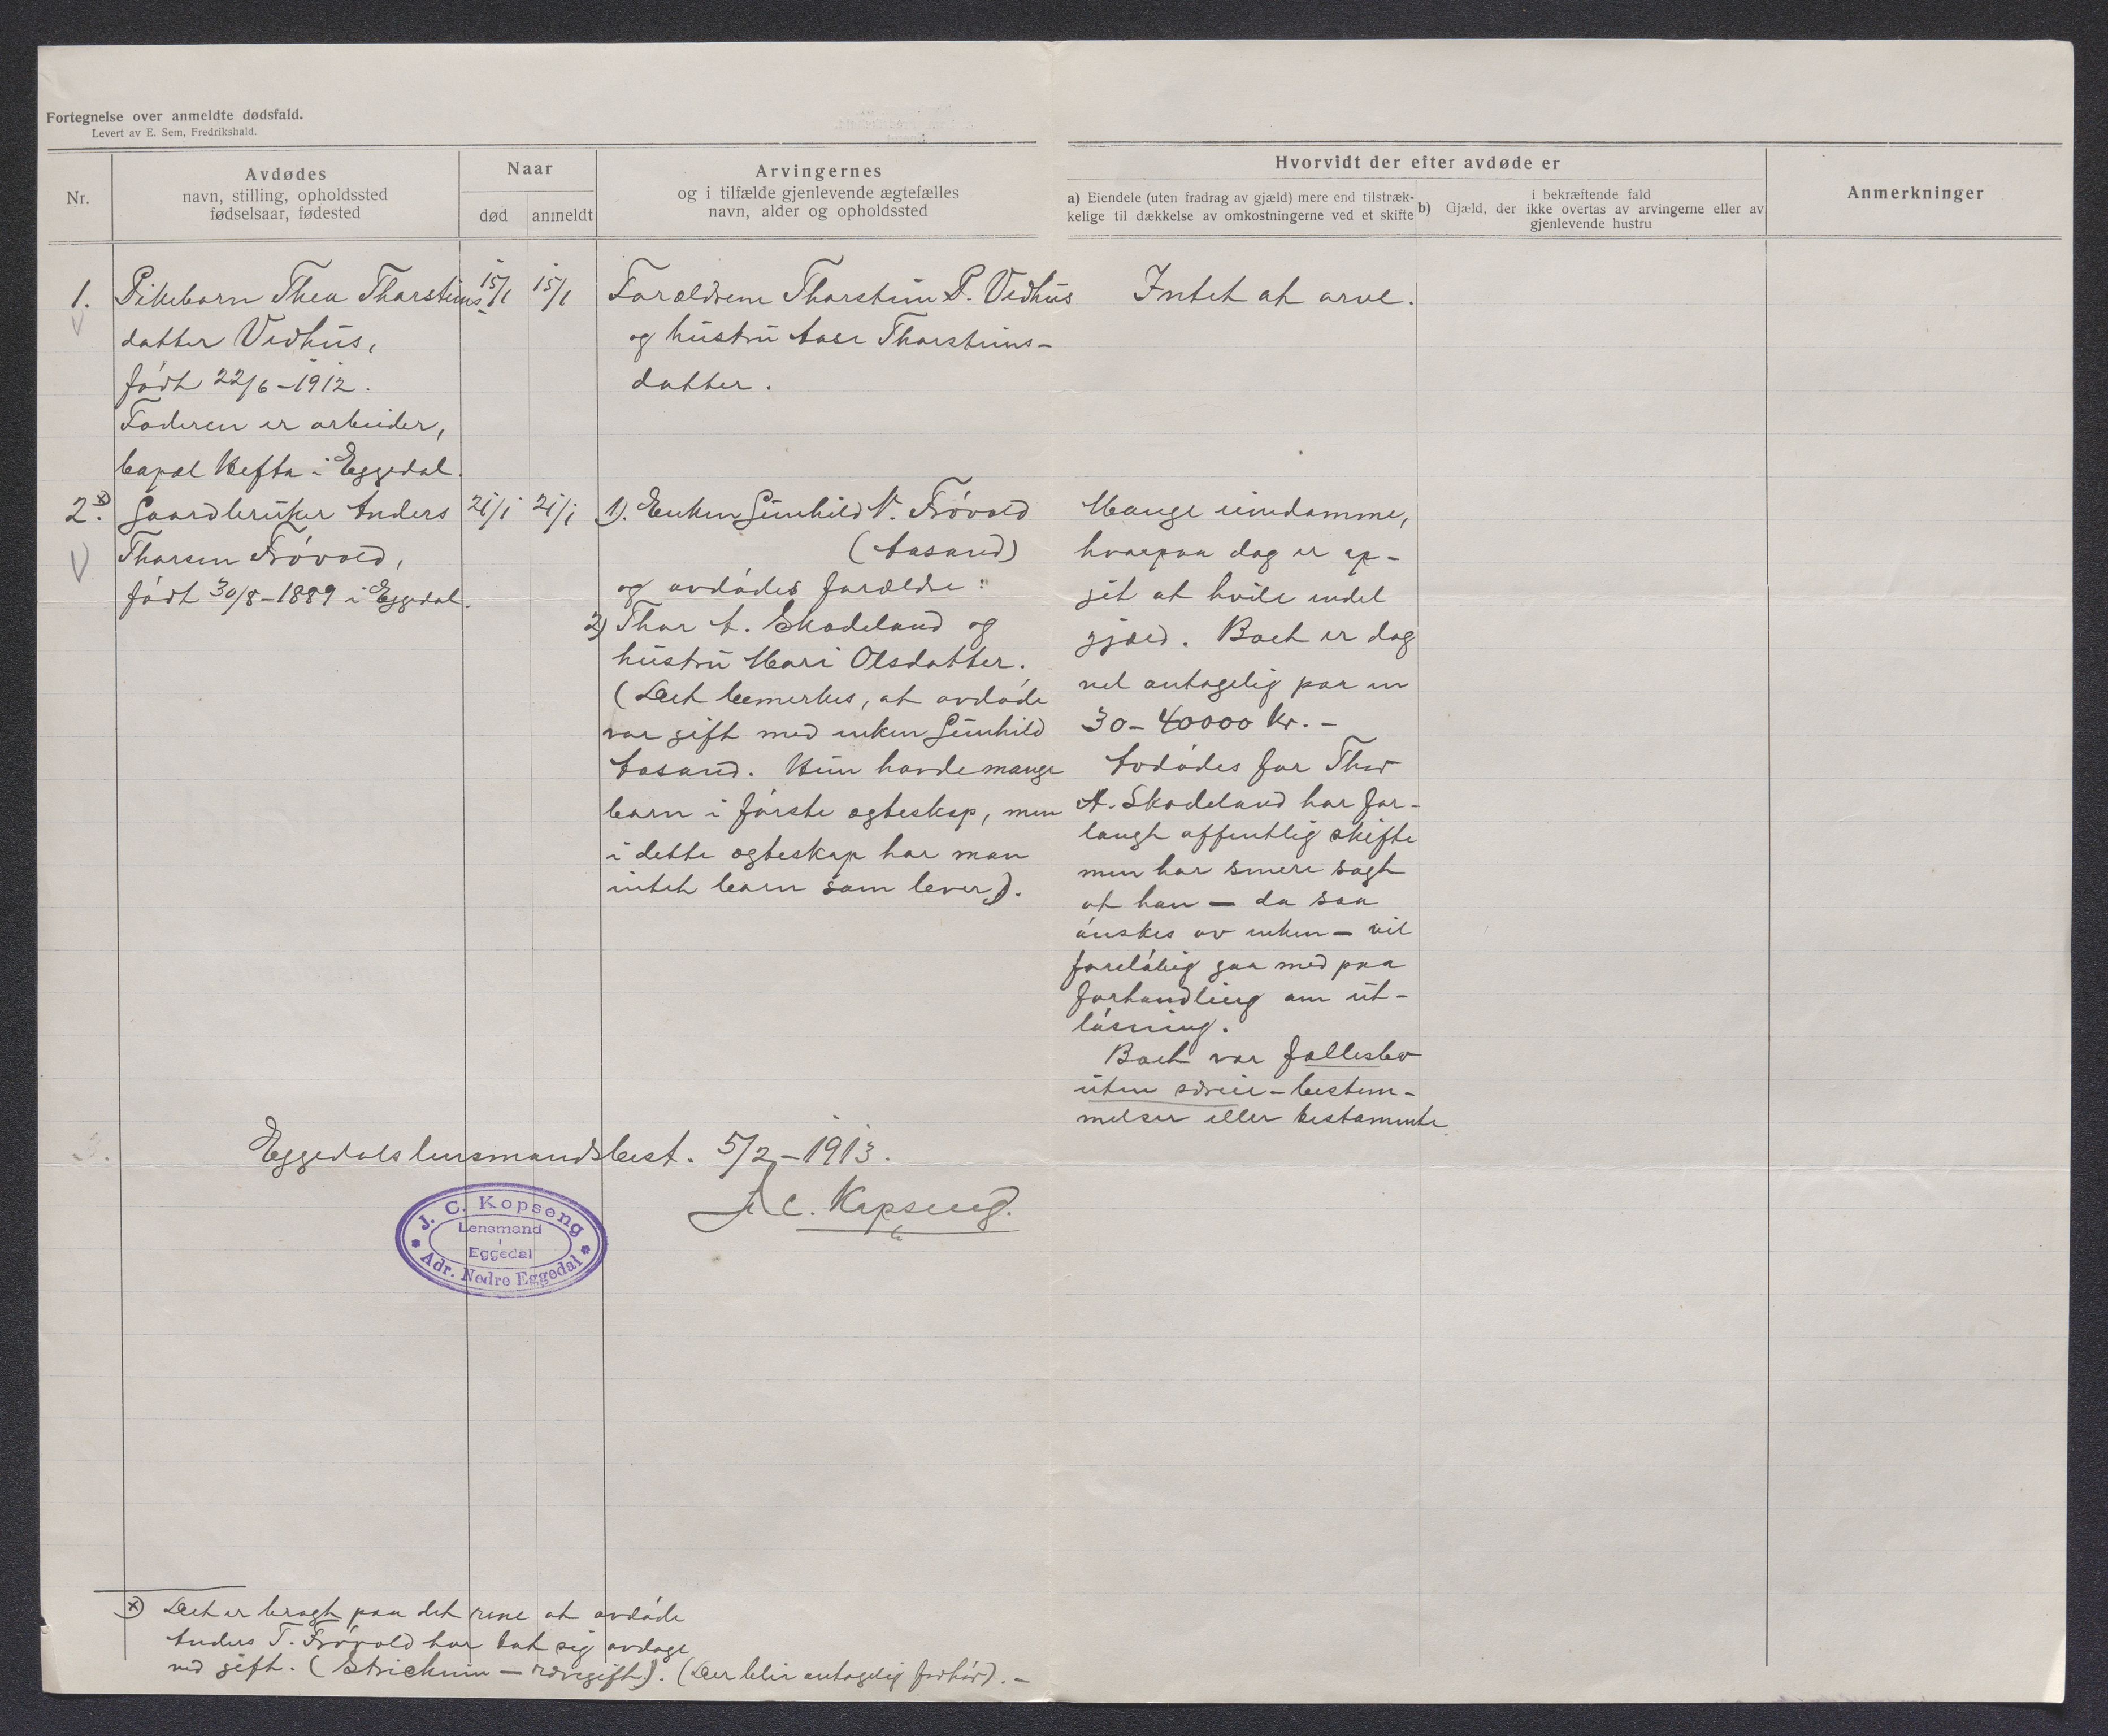 Fortegnelse over anmeldte dødsfald.
Levert av E. Sem, Fredrikshald.
Nr.
Avdødes
navn, stilling, opholdssted
fødselsaar, fødested
Naar
død
anmeldt
Arvingernes
og i tilfælde gjenlevende ægtefælles
navn, alder og opholdssted
Hvorvidt der efter avdøde er
a) Eiendele (uten fradrag av gjæld) mere end tilstræk-
kelige til dækkelse av omkostningerne ved et skifte
i bekræftende fald
b) Gjæld, der ikke overtas av arvingerne eller av
gjenlevende hustru
Anmerkninger
1.
Pikebarn Thea Thorsteins
datter Vedhus,
født 22/6-1912.
Faderen er arbeider,
Hefta i Eggedal.
15/1
15/1
Forældrene Thorstein P. Vedhus
og hustru Aase Thorsteins-
datter.
Intet at arve.
2. x)
Gaardbruker Anders
Thorsen Frøvold,
født 30/8-1889 i Eggedal.
21/1
21/1
1). Enken Gunhild N. Frøvold
(Aasand)
og avdødes forældre:
2) Thor A. Skadeland og
hustru Mari Olsdatter.
(Det bemerkes, at avdøde
var gift med enken Gunhild
Aasand. Hun havde mange
barn i første egteskap, men
i dette egteskap har man
intet barn som lever).
Mange eiendomme,
hvorpaa dog er op-
git at hvile endel
gjæld. Boet er dog
vel antagelig paa en
30-40000 kr. -
Avdødes far Thor
A. Skadeland har for-
langt offentlig skifte
men har senere sagt
at han — da saa
ønskes av enken — vil
foreløbig gaa med paa
forhandling om ut-
løsning.
Boet var fællesbo
uten særeie-bestem-
melser eller testamente.
3.
Eggedals lensmandsbest. 5/2-1913.
J. C. Kopseng.
J. C. Kopseng
Lensmand
i
Eggedal
Adr. Nedre Eggedal
x) Det er bragt paa det rene at avdøde
Anders T. Frøvold har tat sig avdage
ved gift. (Stricknin — rævegift). (Der blir antagelig forhør). -